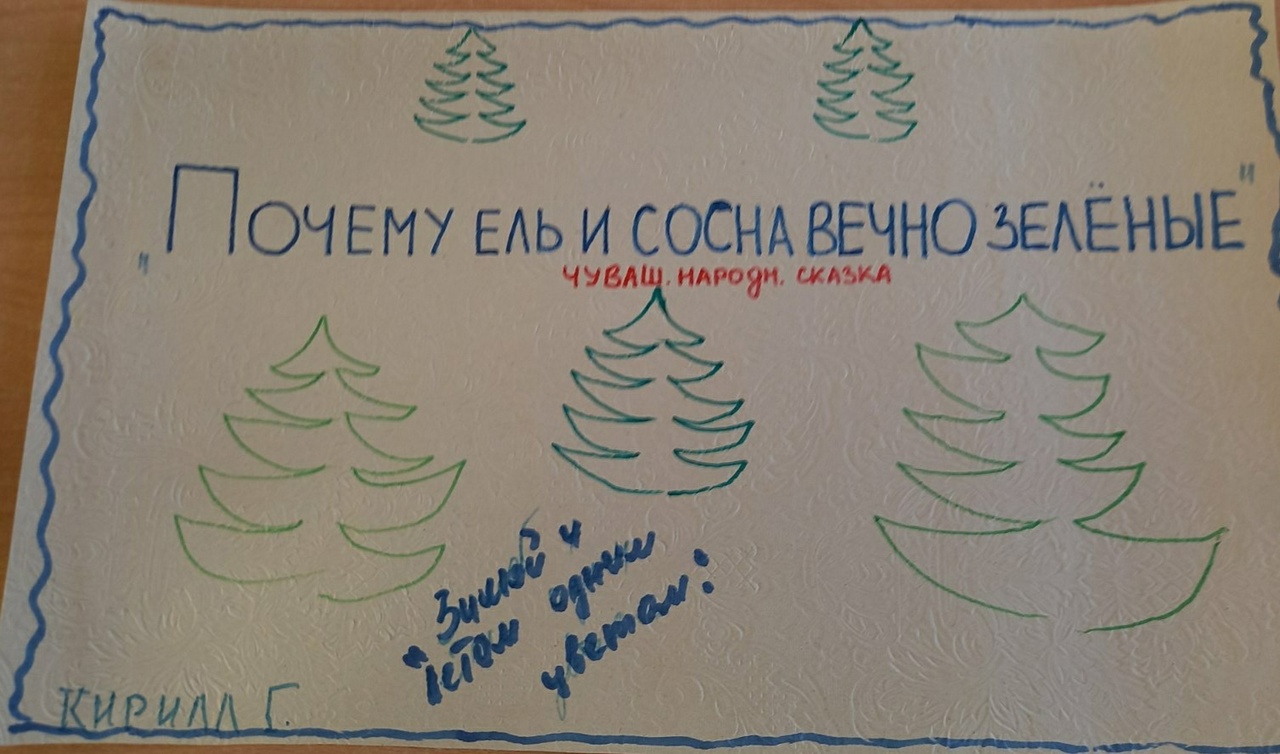 „Почему ель и сосна вечно зелёные"
чуваш. народн. сказка
"Зимой и
летом одним
цветом."
Кирилл Г.